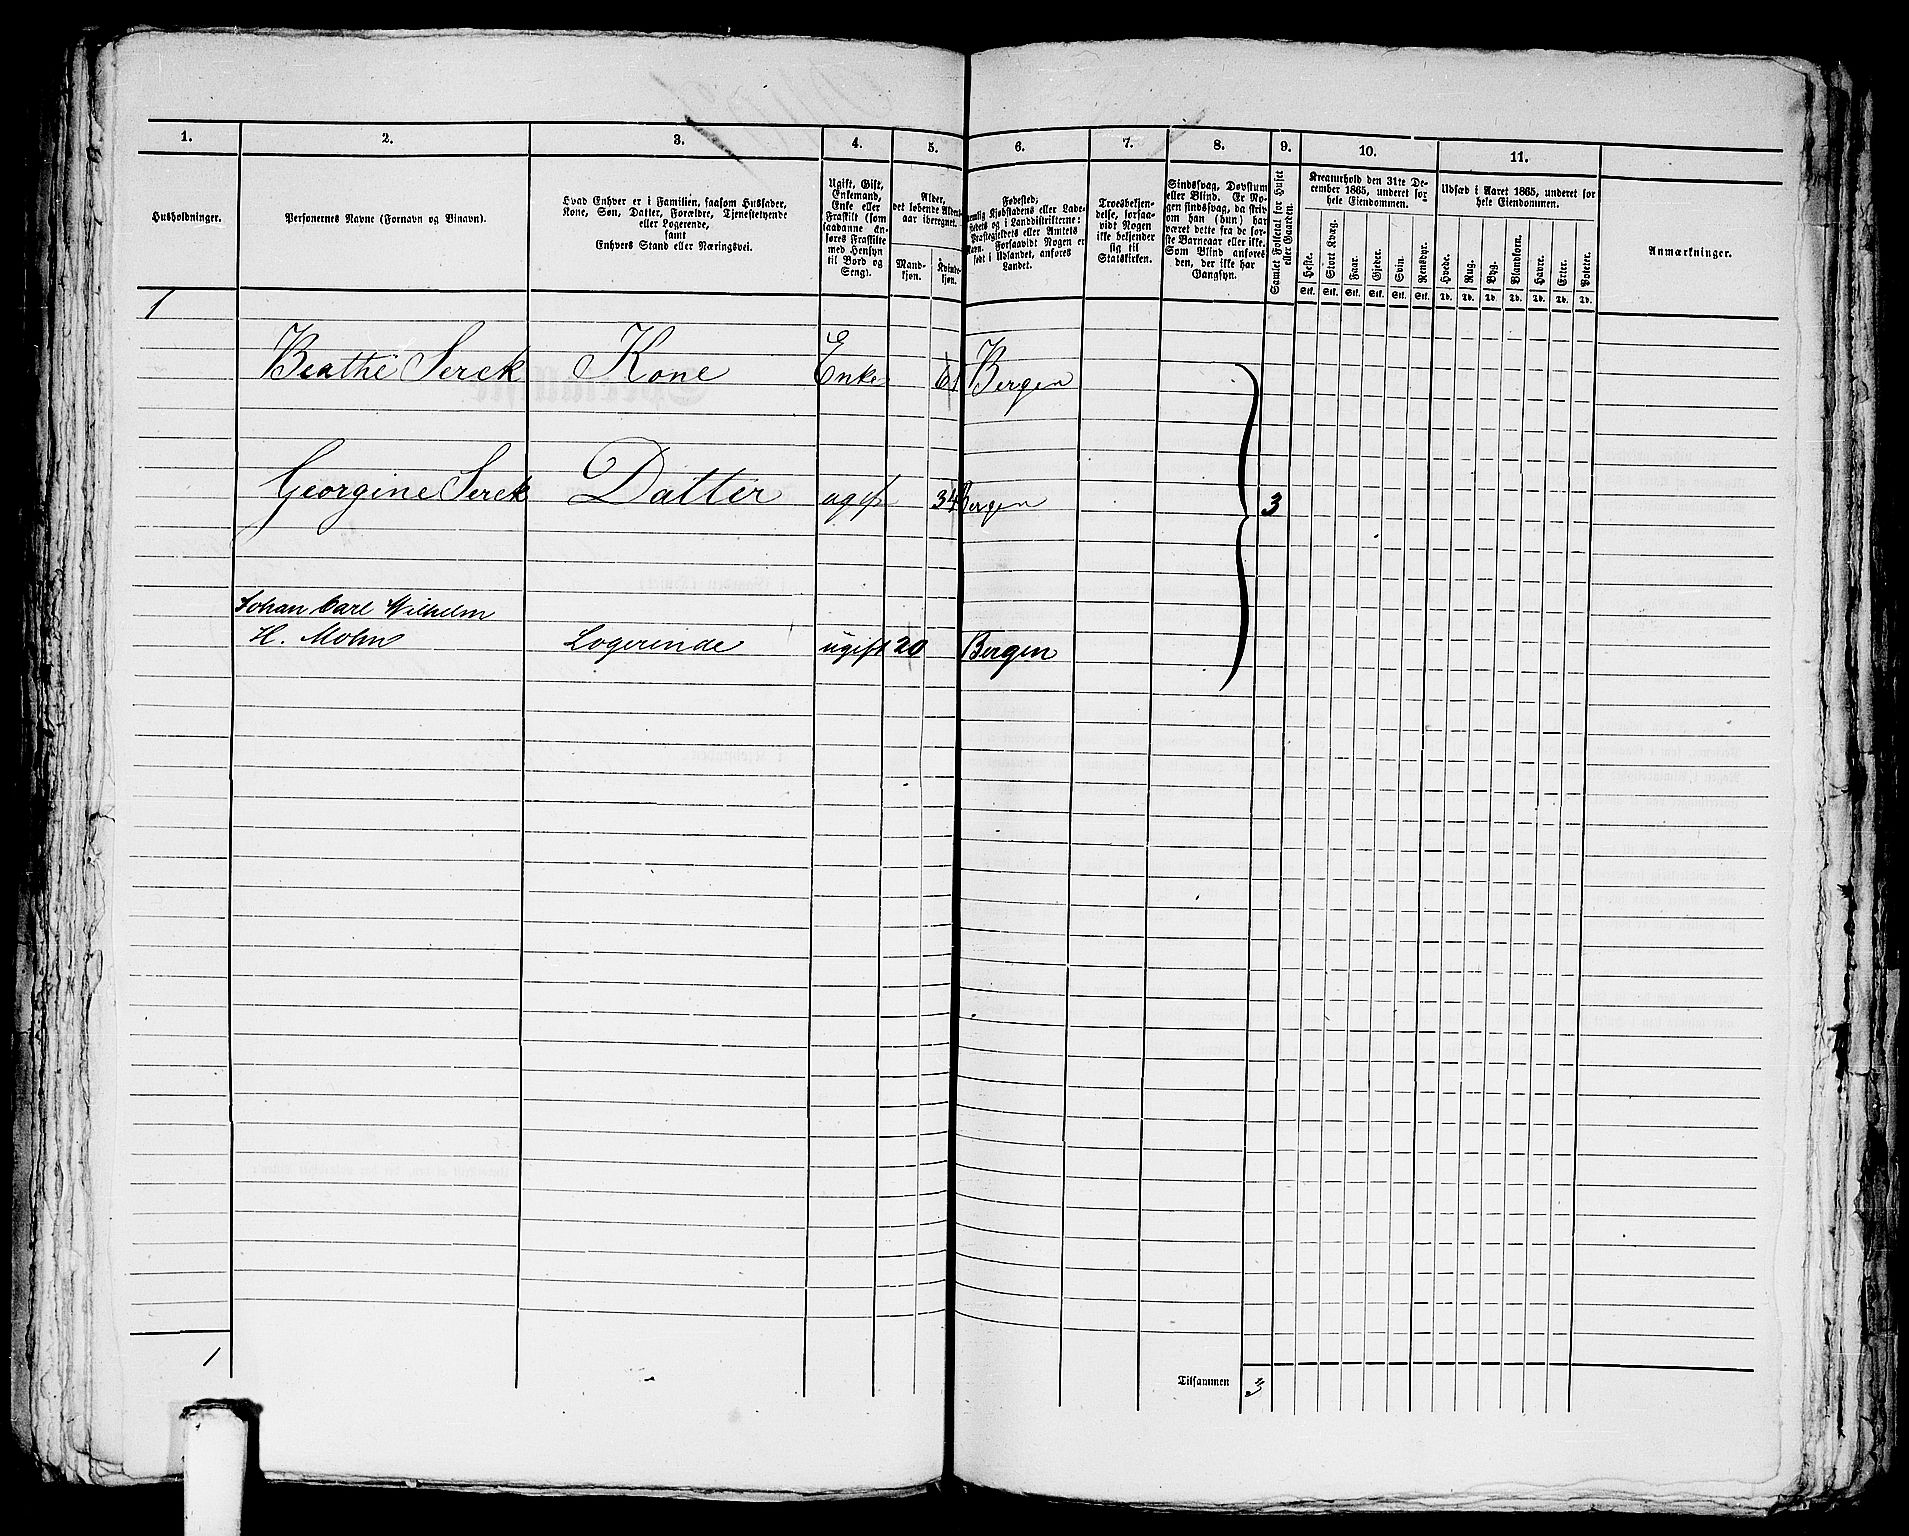 1. 2. 3. 4. 5. 6. 7. 8. 9. 10. 11.
Husholdninger.
Personernes Navne (Fornavn og Binavn).
Hvad Enhver er i Familien, saasom Husfader,
Kone, Søn, Datter, Forældre, Tjenestetyende
eller Logerende,
samt
Enhvers Stand eller Næringsvei.
Ugift, Gift,
Enkemand,
Enke eller
Fraskilt (som
saadanne an-
føres Fraskilte
med Hensyn
til Bord og
Seng).
Alder,
det løbende Alders-
aar iberegnet.
Mand-
kjøn.
Kvinde-
kjøn.
Fødested,
nemlig Kjøbstadens eller Lade-
stedets og i Landdistrikterne:
Præstegjeldets eller Amtets
Navn. Forsaavidt Nogen er
født i Udlandet, anføres
Landet.
Troesbekjen-
delse, forsaa-
vidt Nogen
ikke bekjender
sig til
Statskirken.
Sindssvag, Døvstum
eller Blind. Er No-
gen sindssvag, da skriv
om han (hun) har
været dette fra de før-
ste Barneaar eller ikke.
Som Blind anføres
den, der ikke har
Gangsyn.
Samlet Folketal for Huset
eller Gaarden.
Kreaturhold den 31te De-
cember 1865, underet for
hele Eiendommen.
Heste. Stort Kvæg. Faar. Gjeder. Svin. Rensdyr.
Stk. Stk. Stk. Stk. Stk. Stk.
Udsæd i Aaret 1865, underet for
hele Eiendommen.
Hvede. Rug. Byg. Blandkorn. Havre. Erter. Poteter.
Td. Td. Td. Td. Td. Td. Td.
Anmærkninger.
1
Beathe Serck Kone Enke 61 Bergen
Georgine Serck Datter ugift 34 Bergen 3
Johan Carl Wilhelm
H. Mohn Logerende ugift 20 Bergen
1
Tilsammen 3